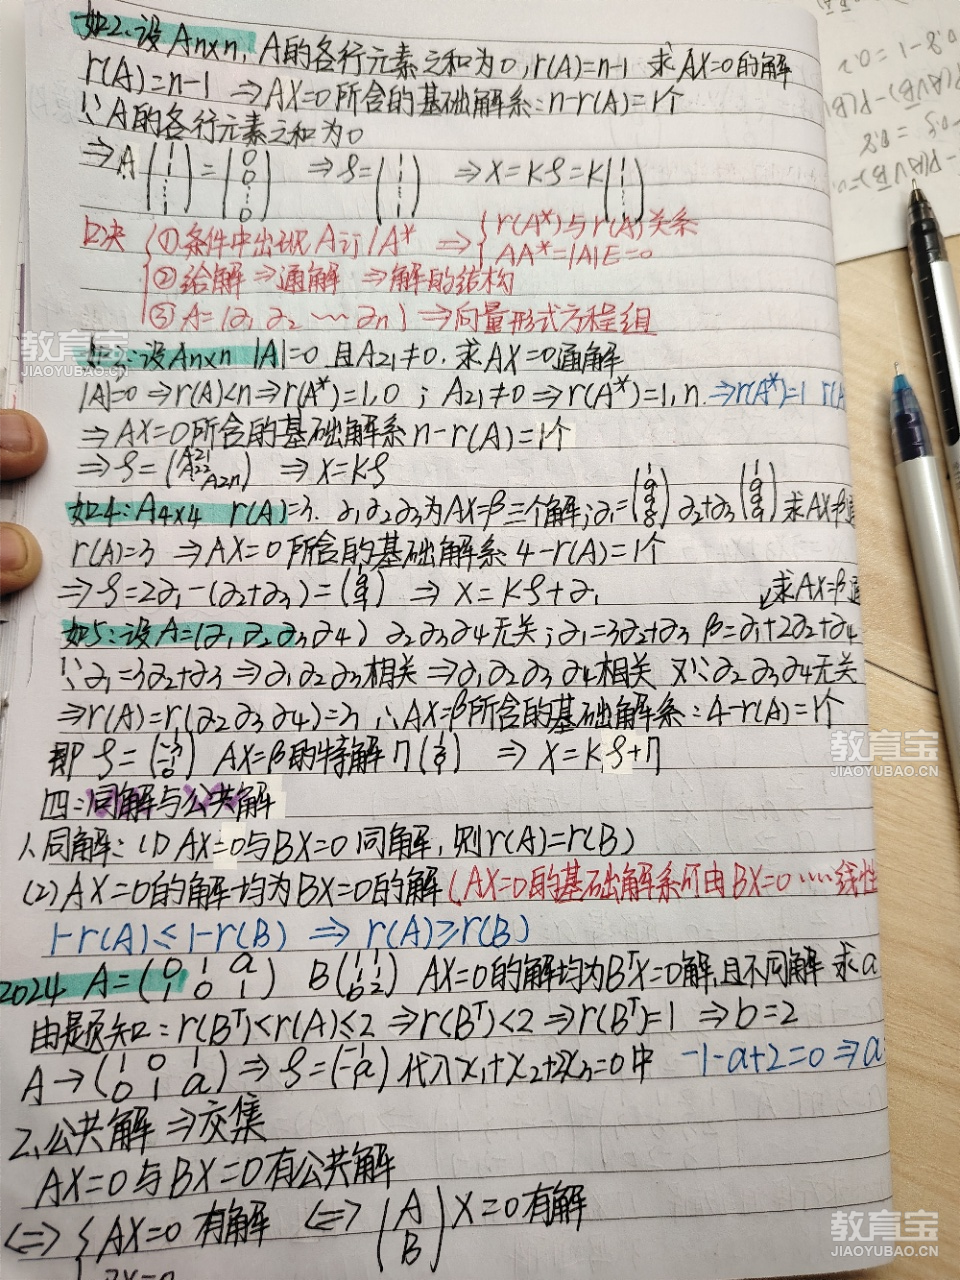 如2:设An×n, A的各行元素之和为0, r(A)=n-1 求AX=0的解
r(A)=n-1 ⇒AX=0所含的基础解系:n-r(A)=1个
∵A的各行元素之和为0
⇒A(1 1 ⋮ 1)=(0 0 ⋮ 0) ⇒ξ=(1 1 ⋮ 1) ⇒x=kξ=k(1 1 ⋮ 1)
口决 ①条件中出现A订|A* ⇒ {r(A*)与r(A)关系
AA*=|A|E=0
②给解⇒通解 ⇒解的结构
③A=(α1 α2 ⋯ αn) ⇒向量形式方程组
设An×n |A|=0 且A21≠0. 求AX=0通解
|A|=0 ⇒r(A)<n⇒r(A*)=1,0 ; A21≠0⇒r(A*)=1,n.⇒r(A*)=1 r(A
⇒AX=0所含的基础解系n-r(A)=1个
⇒ξ=(A21 A22 A2n) ⇒x=kξ
如4:A4×4 r(A)=3. α1α2α3为AX=β三个解; α1= α2+α3 求AX=β
r(A)=3 ⇒AX=0所含的基础解系4-r(A)=1个
⇒ξ=2α1-(α2+α3)= ⇒x=kξ+α1 求AX=β
如5:设A=(α1 α2 α3 α4) α2α3α4无关;α1=3α2+α3 β=α1+2α2+α4
∵α1=3α2+α3⇒α1α2α3相关⇒α1α2α3α4相关 又∵α2α3α4无关
⇒r(A)=r(α2α3α4)=3 ∴AX=β所含的基础解系:4-r(A)=1个
即ξ= AX=β的特解η ⇒x=kξ+η
四:同解与公共解
1、同解:(1)AX=0与BX=0同解,则r(A)=r(B)
(2)AX=0的解均为BX=0的解(AX=0的基础解系可由BX=0⋯⋯线性
1-r(A)≤1-r(B) ⇒ r(A)≥r(B)
2024 A=(0 1 a 1 0 1) B(1 1 1 1 b 2) AX=0的解均为BᵀX=0解,且不同解 求a
由题知:r(Bᵀ)<r(A)≤2⇒r(Bᵀ)<2⇒r(Bᵀ)=1 ⇒b=2
A→(1 0 1 0 1 a)⇒ξ=(-1 -a 1)代入x1+x2+2x3=0中 -1-a+2=0⇒a
2、公共解⇒交集
AX=0与BX=0有公共解
⇔{AX=0 有解 ⇔(A B)X=0有解
BX=0
教育宝
JIAOYUBAO.CN
教育宝
JIAOYUBAO.CN
教育宝
JIAOYUBAO.CN